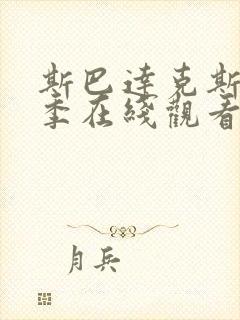 斯巴達克斯
季在綫觀看
月兵